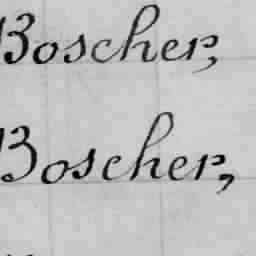 Boscher,
Boscher,